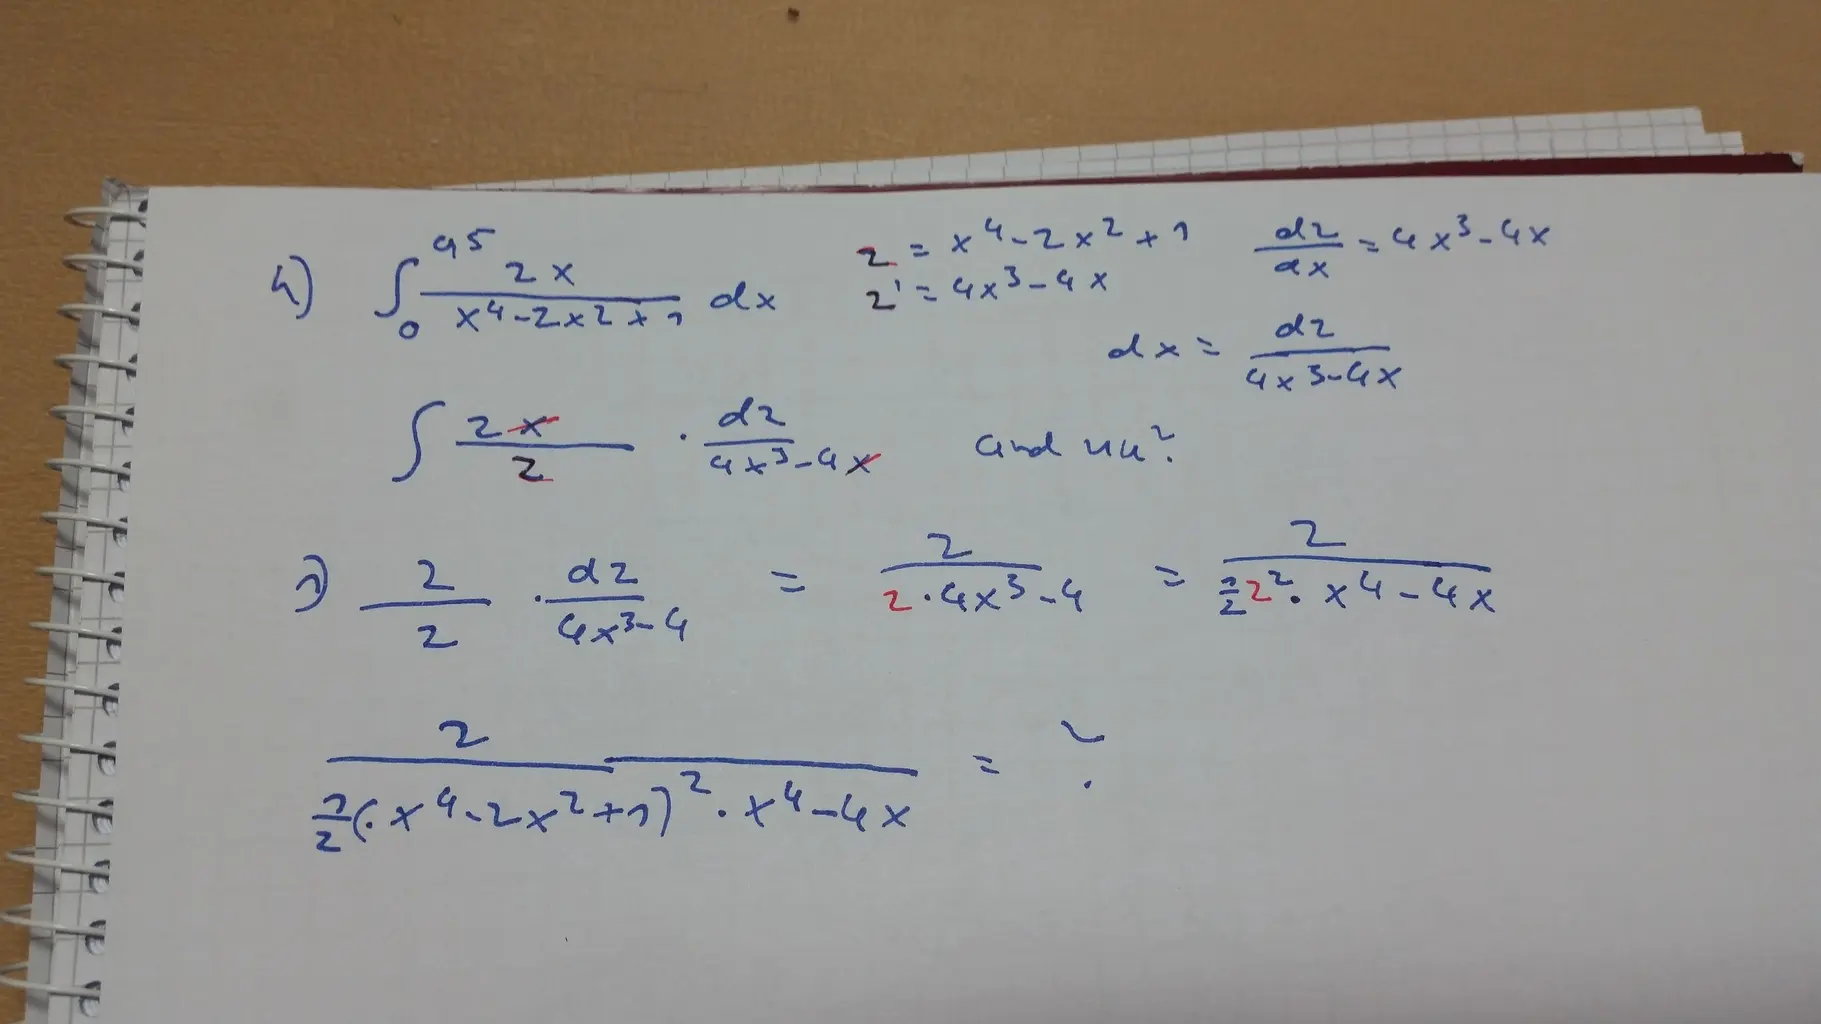 4) ∫₀^{0,5} 2x / (x⁴-2x²+1) dx z = x⁴-2x²+1 dz/dx = 4x³-4x
z' = 4x³-4x
dx = dz / (4x³-4x)
∫ 2x / z · dz / (4x³-4x) and nu?
1) 2 / z · dz / (4x³-4) = 2 / (z·4x³-4) = 2 / (½z²·x⁴-4x)
2 / (½(·x⁴-2x²+1)²·x⁴-4x) = ?